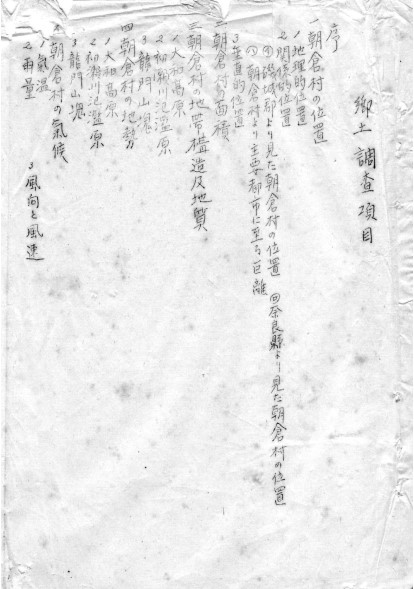 郷土調査項目
序
一朝倉村の位置
1地理的位置
2関係的位置
㋑磯城郡より見た朝倉村の位置 ㋺奈良縣より見た朝倉村の位置
㋩朝倉村より主要都市に至る巨離
3垂直的位置
二朝倉村の面積
三朝倉村の地帯構造及地質
1大和高原
2初瀬川氾濫原
3龍門山塊
四朝倉村の地勢
1大和高原
2初瀬川氾濫原
3龍門山塊
五朝倉村の氣候
1氣温
2雨量 3風向と風速